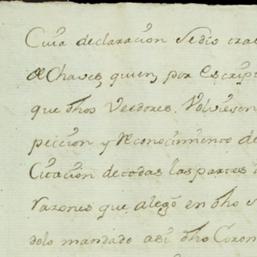 Cuia declaracion se dio tras
de Chaves, quien, por Escrip
que dhos Veedores. Volviesen
peicion y Reconocimiento de
Citacion de todas las partes
razones que alegó en dho
dolo mandado asi dho Coron